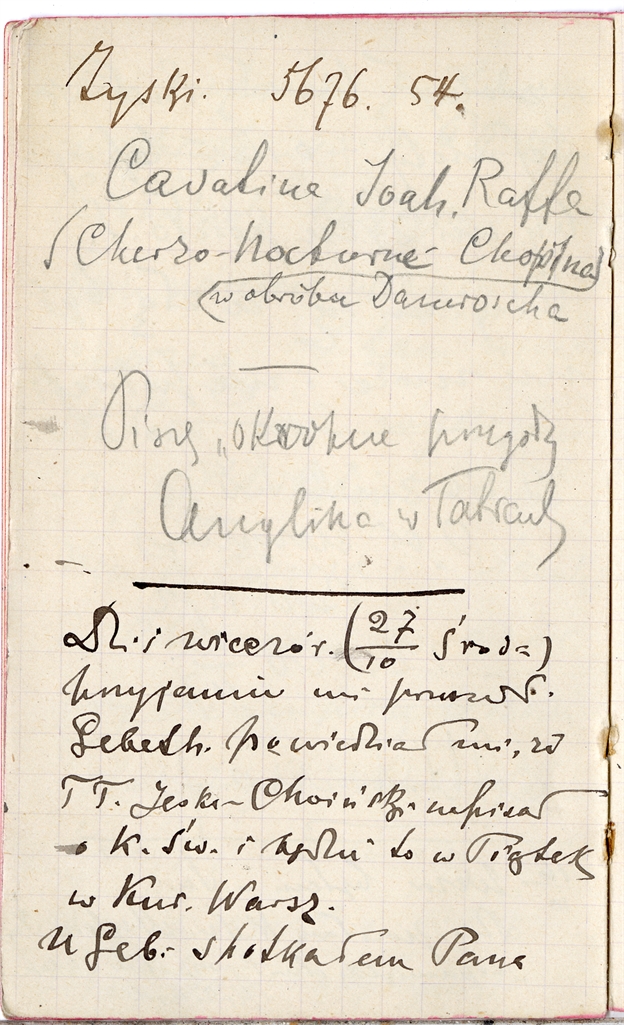 Zyski. 5676. 54.
Cavatine Joah. Raffa
Scherzo-Nocturne Chopina
(w obróbce Damroscha
Piszę „okropne przygody
Anglika w Tatrach
Dziś wieczór. (27/10 środa)
przyjemnie mi przeszedł.
Gebeth. powiedział mi, że
T. Jeske-Choiński napisał
o K. Św. i będzie to w Piątek
w Kur. Warsz.
U Geb. spotkałem Pana